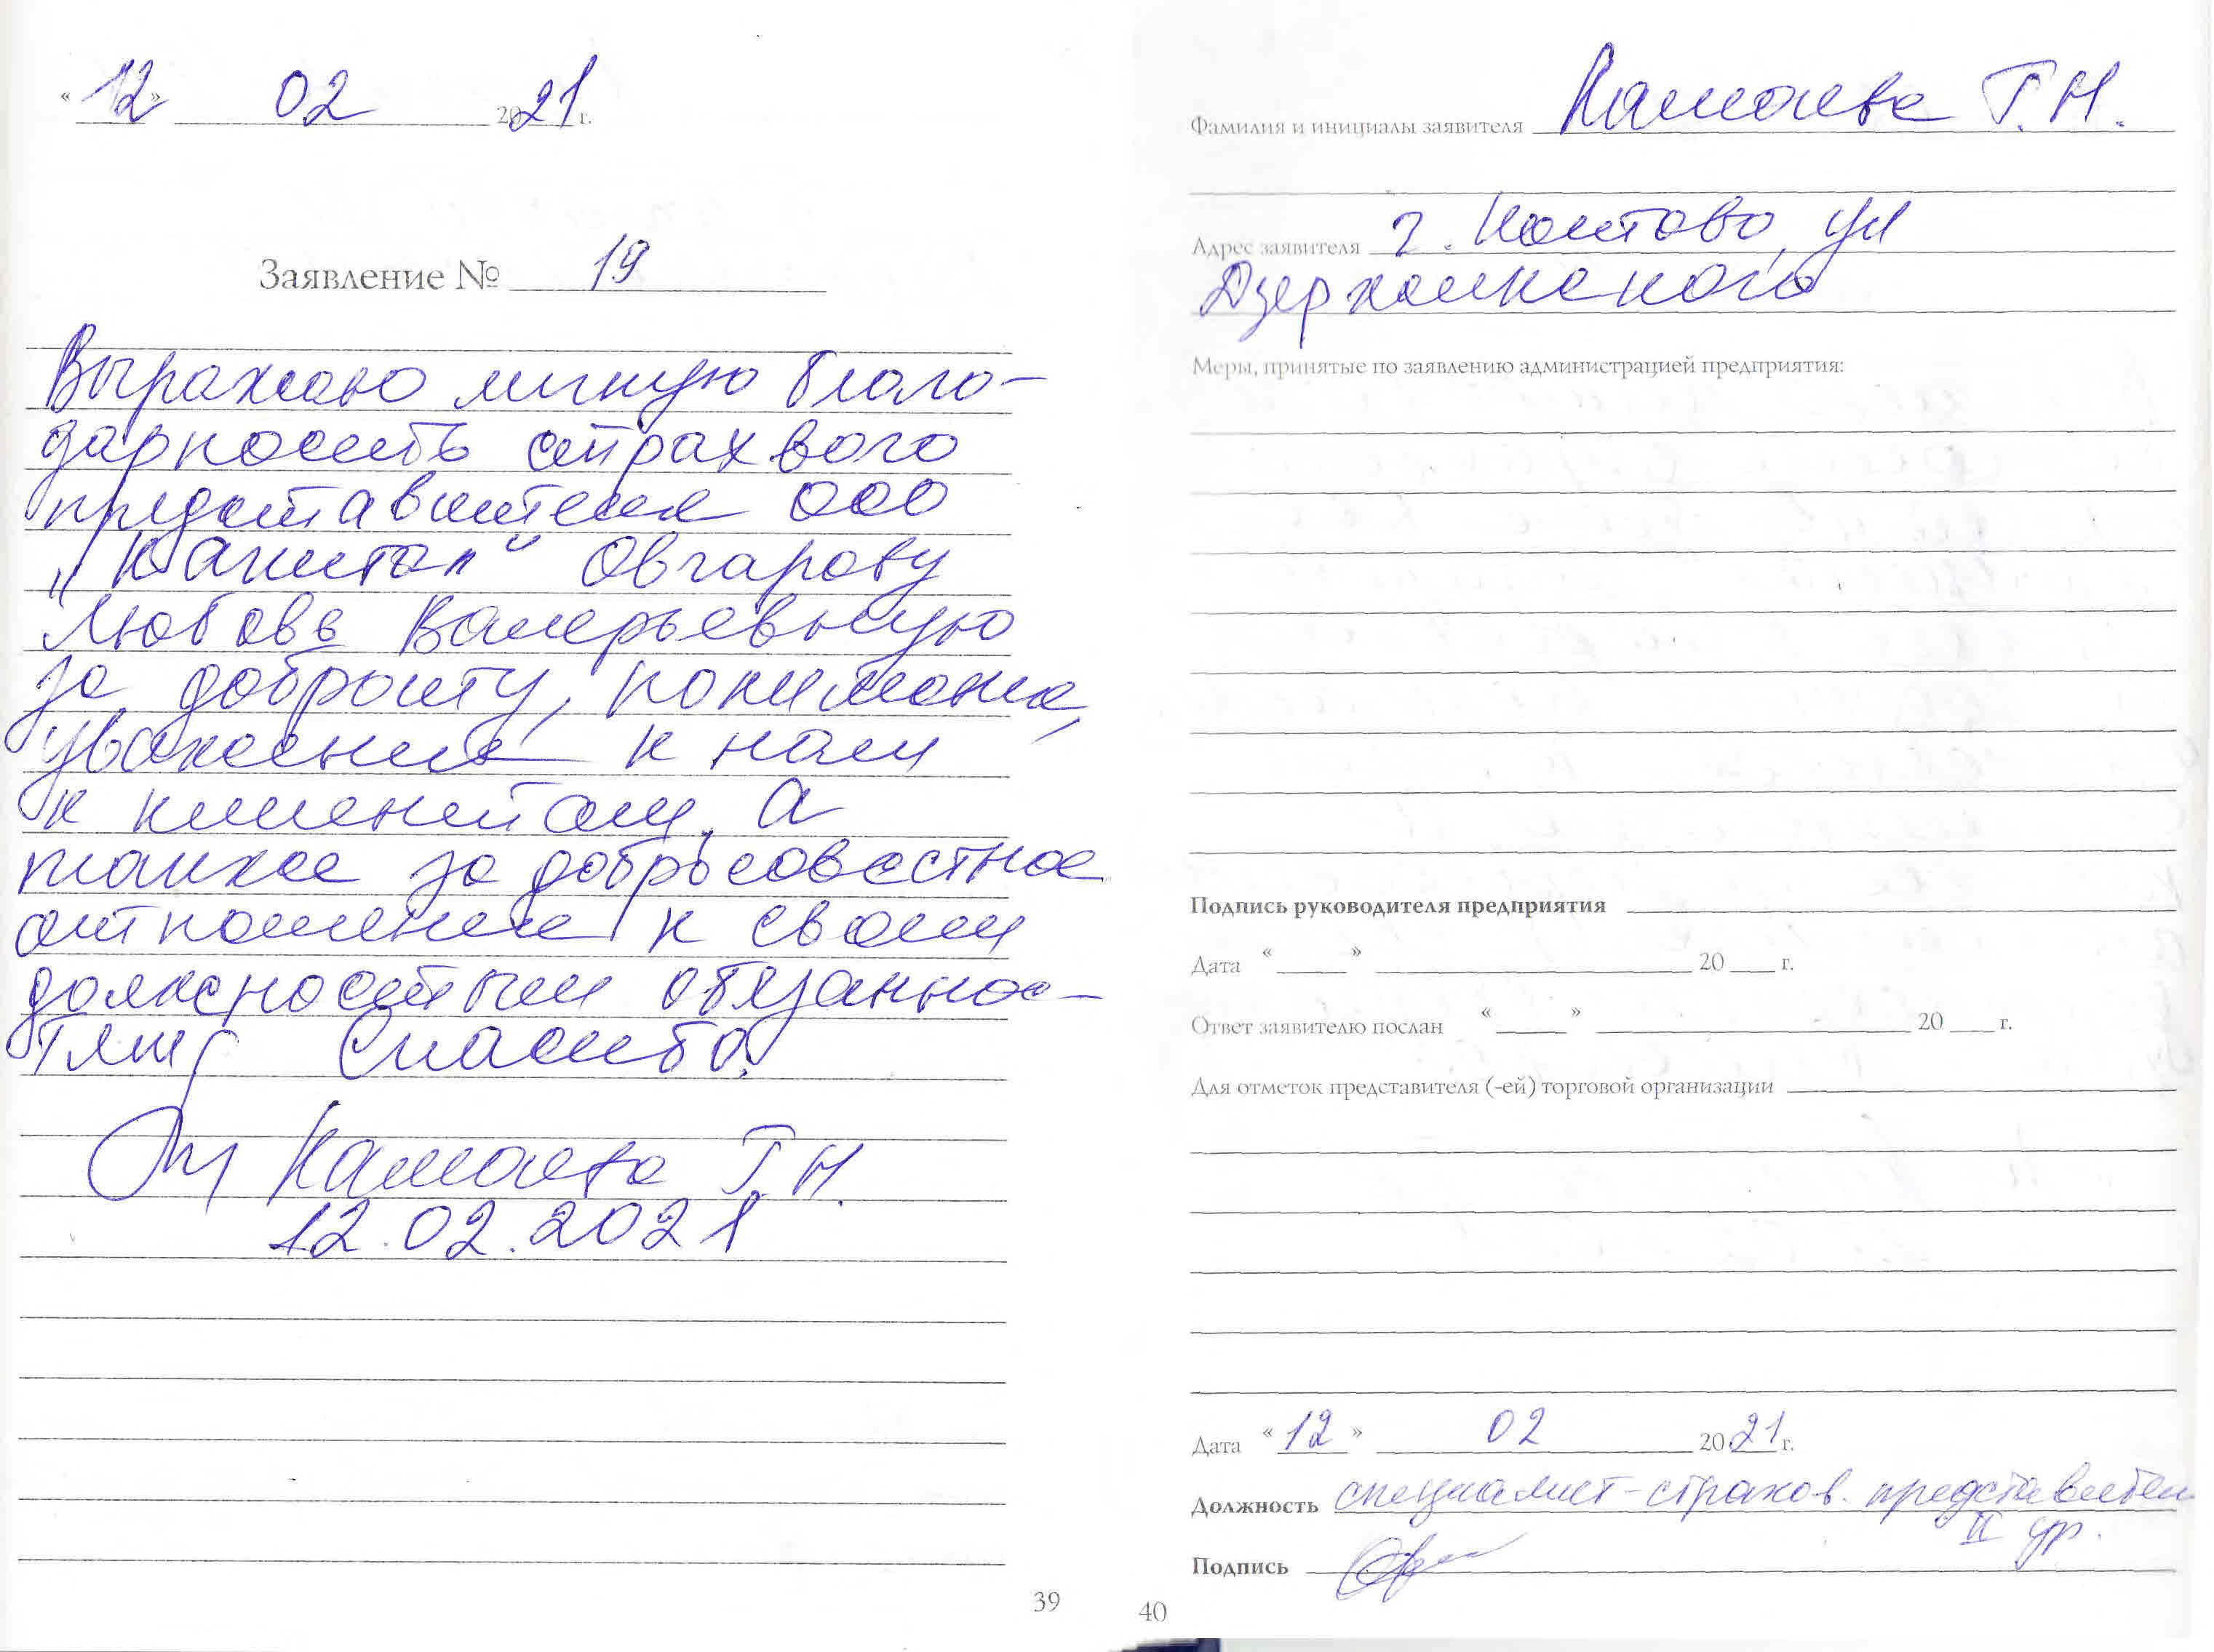 « 12 » 02 2021 г.
Заявление № 19
Выражаю личную благо-
дарность страхвого
представителя ООО
„Капитал" Овчарову
Любовь Валерьевную
за доброту, понимание,
уважение к нам
к клиентам, а
также за добросовестное
отношение к своим
должностным обязаннос-
тям, Спасибо!
Камаева Т.Н.
12.02.2021
39
Фамилия и инициалы заявителя Камаева Т.Н.
Адрес заявителя г. Кстово, ул
Дзержинского
Меры, принятые по заявлению администрацией предприятия:
Подпись руководителя предприятия
Дата « » 20 г.
Ответ заявителю послан « » 20 г.
Для отметок представителя (-ей) торговой организации
Дата « 12 » 02 2021 г.
Должность специалист-страхов. представител
II ур.
Подпись
40